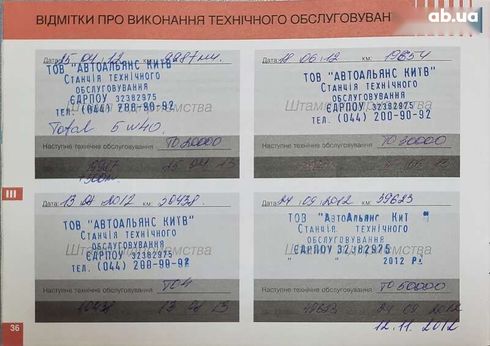 ab.ua
ВІДМІТКИ ПРО ВИКОНАННЯ ТЕХНІЧНОГО ОБСЛУГОВУВАН
Дата: 15 04 12 км:
ТОВ "АВТОАЛЬЯНС КИЇВ"
Станція технічного
обслуговування
ЄДРПОУ 32382975
ТЕЛ. (044) 200-90-92
Total 5W40
Наступне технічне обслуговування ТО 20000
15 04 13
Дата: 11 06 12 км: 19654
ТОВ "АВТОАЛЬЯНС КИЇВ"
Станція технічного
обслуговування
ЄДРПОУ 32382975
ТЕЛ. (044) 200-90-92
Наступне технічне обслуговування ТО 30000
III
Дата: 13 08 2012 км: 29438
ТОВ "АВТОАЛЬЯНС КИЇВ"
Станція технічного
обслуговування
ЄДРПОУ 32382975
ТЕЛ. (044) 200-90-92
Наступне технічне обслуговування ТО 4
13 08 13
Дата: 24 09 2012 км: 39623
ТОВ "АвтоАльянс Киї
Станція технічного
обслуговування
ЄДРПОУ 32382975
2012 р.
Наступне технічне обслуговування ТО 50000
49623 24 09 2012
12.11.2012
36